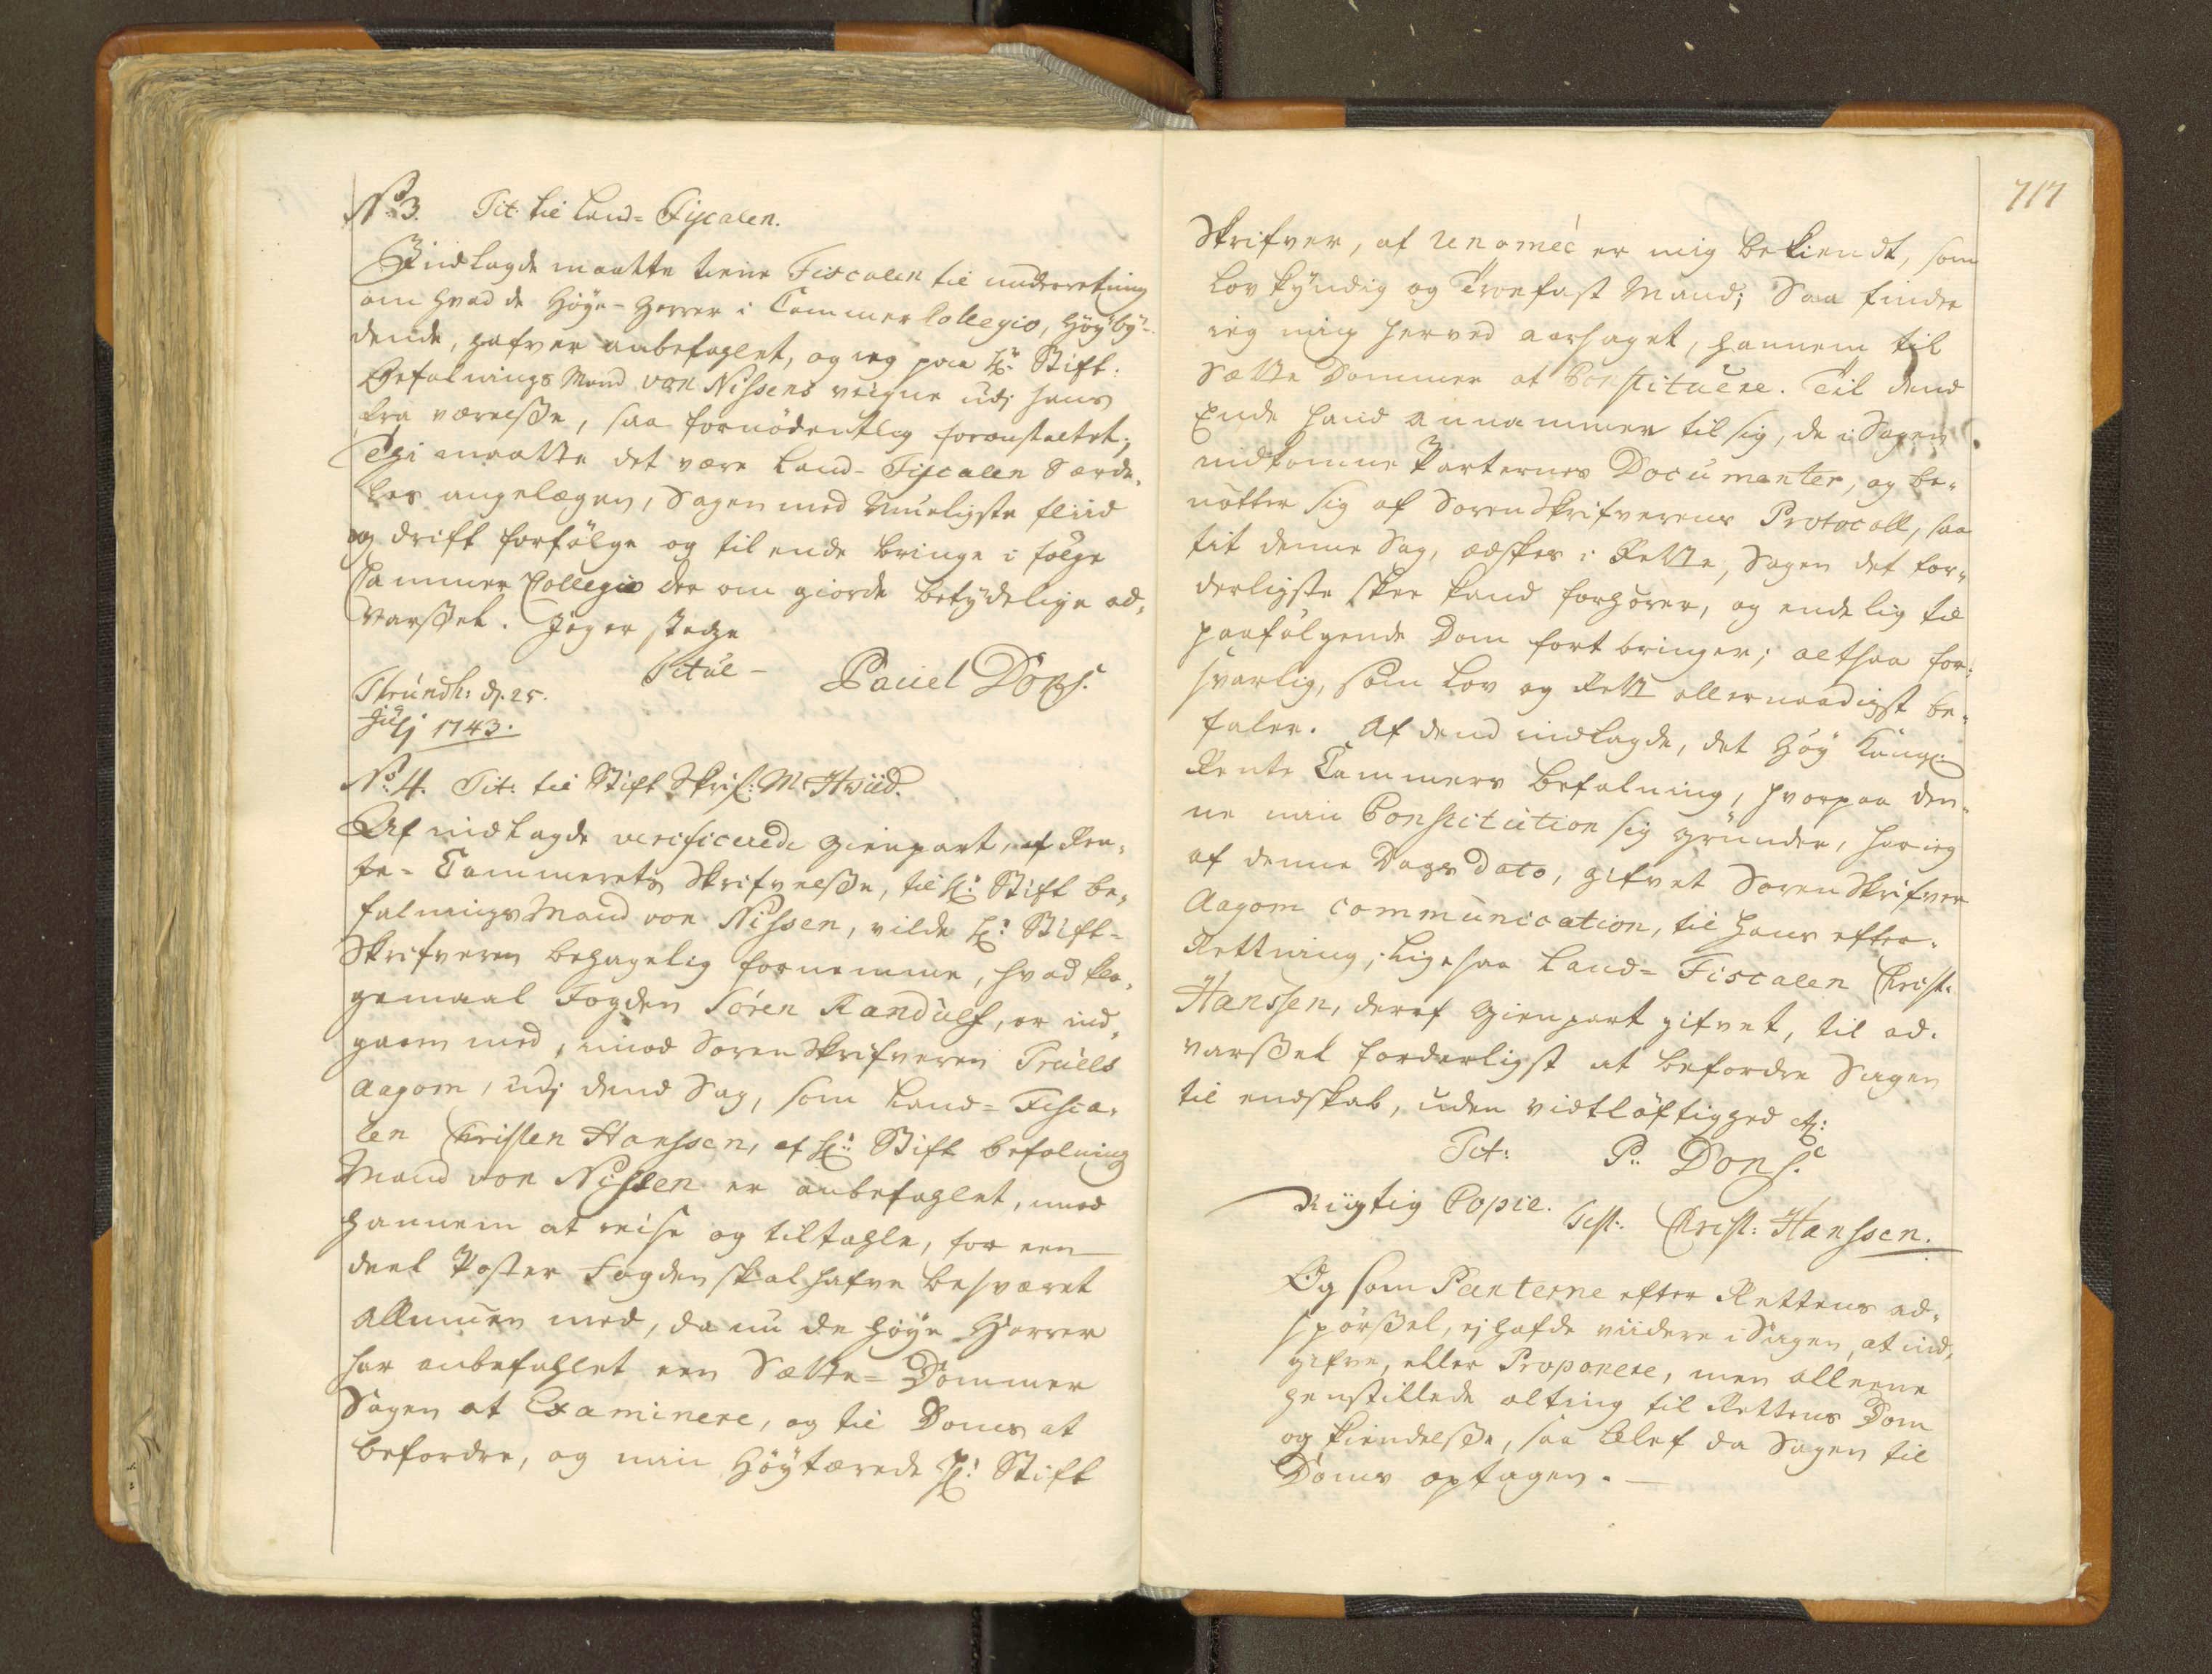 No 3. Tit: til Land-Fiscalen.
Indlagde maatte tiene Fiscalen til underretning
om hvad de Høye-Herrer i CammerCollegio, Høybÿ-
dende, hafver anbefahlet, og ieg paa Hr: Stift:
BefalningsMand von Nissens veigne udj hans
fra værelsse, saa fornødentlig foranstaltet;
Thi maatte det være Land-Fiscalen Særde-
les angelægen, Sagen med Mueligste fliid
og drift forfølge og til ende bringe i følge
Cammer Collegio der om giorde betÿdelige ad-
varssel. Jeg er stedze
Titul - Pauel Dons.
Thrundh: d. 25.
Julij 1743.
No. 4. Tit: til Stift Skrif: Mr Hwiid.
Af indlagde verificerede gienpart, af Ren-
te-Cammerets Skrifvelsse, til Hr: Stift be-
falningsMand von Nissen, vilde Hr: Stift-
Skrifveren behagelig fornemme, hvad kla-
gemaal Fogden Søren Randulf, er ind-
gaaen med, imod Sorenskrifveren Truels
Aagom, udj dend Sag, som Land-Fisca-
len Christen Hanssen, af Hr: Stift befalning
Mand von Nissen er anbefahlet, imod
hannem at reise og tiltahle, for een
deel Poster Fogden skal hafve besværet
Allmuen med, da nu de høye Herrer
har anbefahlet een Sætte-Dommer
Sagen at Examinere, og til Doms at
befordre, og min Høytærede Hr: Stift
717
Skrifver, af renomeé er mig bekiendt, som
Lovkÿndig og Troefast Mand; Saa finder
ieg mig herved aarsaget, hannem til
Sætte Dommer at Constituere. Til dend
Ende hand annammer til sig, de i Sagen
indkomne Parternes Documenter, og be-
nøtter sig af Sorenskrifverens Protocoll, saa
tit denne Sag, ædskes i Rette, Sagen det for-
derligste skee kand forhører, og endelig til
paafølgende Dom fort bringer; altsaa for-
svarlig, som Lov og Rett allernaadigst be-
faler. Af dend indlagde, det Høÿ Kongl:
Rente Cammers befalning, hvorpaa den-
ne min Constitution sig grunder, har ieg
af denne Dags Dato, gifvet Sorenskrifver
Aagom communication, til hans efter-
Rettning; ligesaa Land-Fiscalen Christ:
Hanssen, deraf gienpart gifvet, til ad-
varssel forderligst at befordre Sagen
til endskab, uden vidtløftighed etc:
Tit: P: Dons.
Rigtig Copie. Test: Christ: Hanssen.
Og som Parterne efter Rettens ad-
spørssel, ej hafde viidere i Sagen, at ind-
gifve, eller Proponere, men alleene
henstillede alting til Rettens Dom
og kiendelsse, saa blef da Sagen til
Doms optagen. -